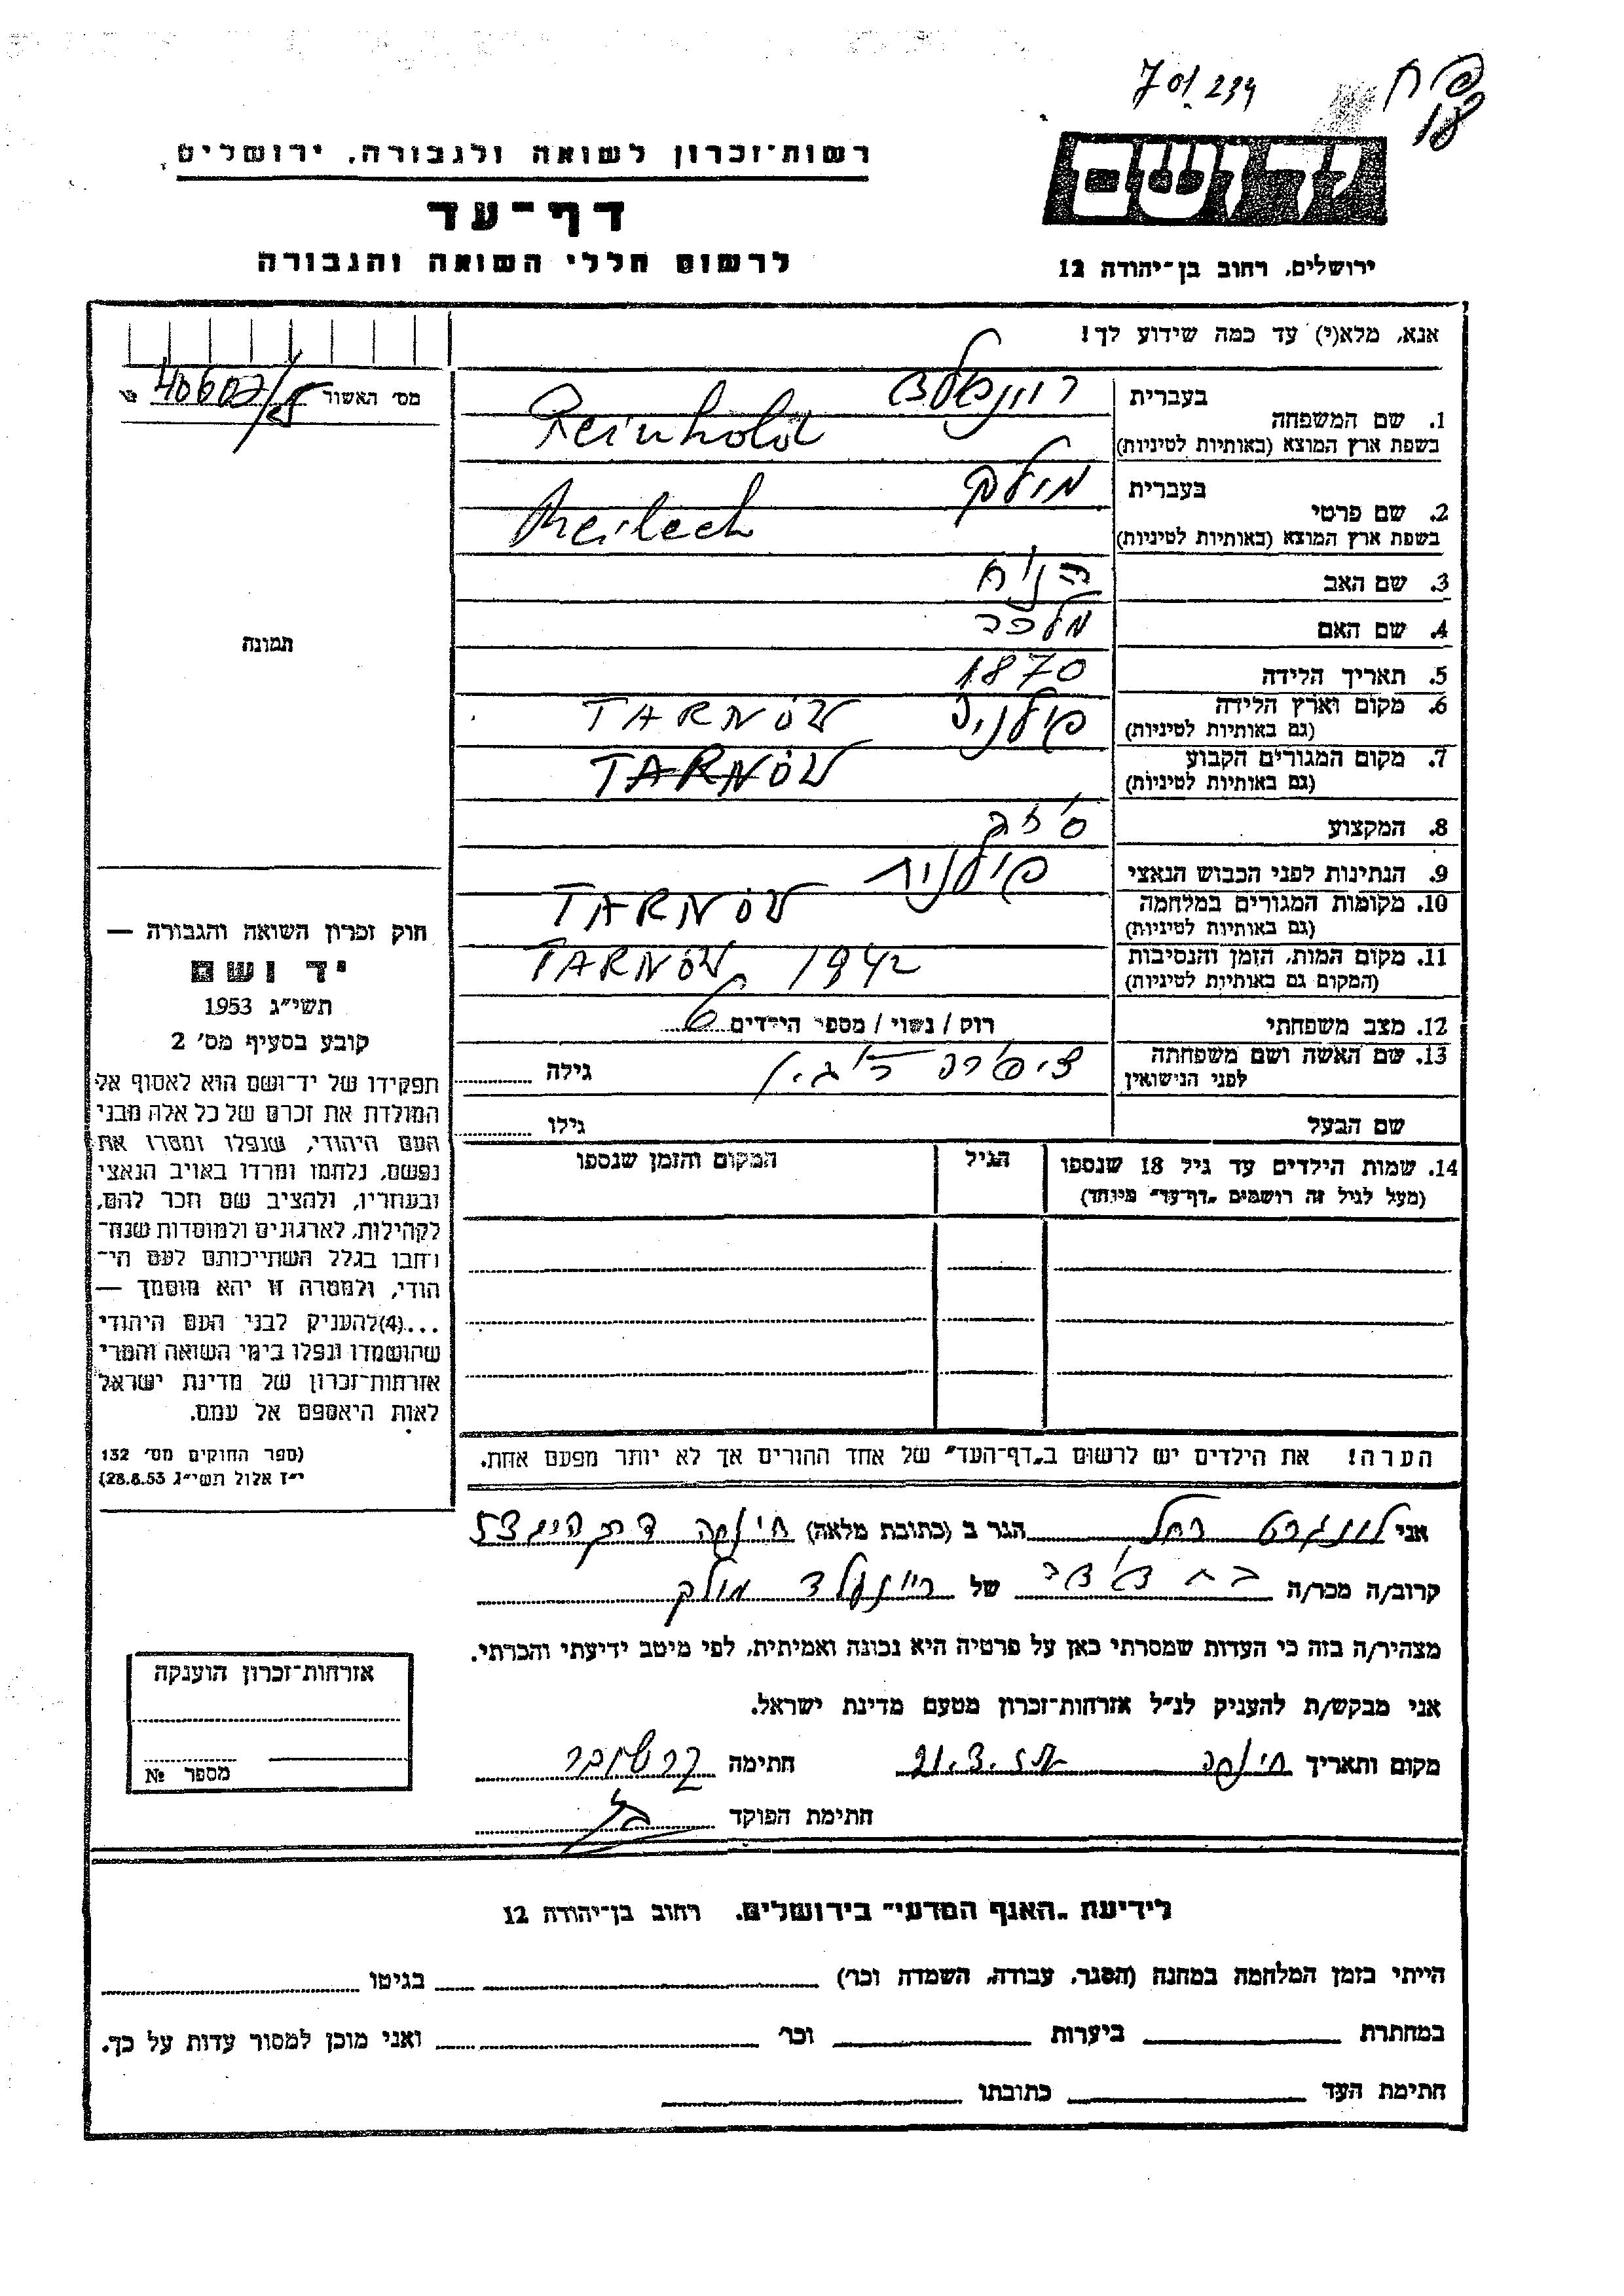 701.234
רשות־זכרון לשואה ולגבורה, ירושלים
יד ושם
דף־עד
לרשום חללי השואה והגבורה
ירושלים, רחוב בן־יהודה 12
אנא, מלא(י) עד כמה שידוע לך!
מס׳ האשור 40607/
1. שם המשפחה
בעברית
בשפת ארץ המוצא (באותיות לטיניות) Reinhold
2. שם פרטי
בעברית מילך
בשפת ארץ המוצא (באותיות לטיניות) Meilech
3. שם האב
4. שם האם מלכה
5. תאריך הלידה 1870
6. מקום וארץ הלידה פולניה TARNÓW
(גם באותיות לטיניות)
7. מקום המגורים הקבוע TARNÓW
(גם באותיות לטיניות)
8. המקצוע
9. הנתינות לפני הכבוש הנאצי פולנית
10. מקומות המגורים במלחמה TARNÓW
(גם באותיות לטיניות)
11. מקום המות, הזמן והנסיבות TARNÓW, 1942
(המקום גם באותיות לטיניות)
12. מצב משפחתי רוק / נשוי / מספר הילדים 6
13. שם האשה ושם משפחתה
לפני הנישואין גילה
שם הבעל גילו
14. שמות הילדים עד גיל 18 שנספו הגיל המקום והזמן שנספו
(מעל לגיל זה רושמים „דף־עד״ מיוחד)
הערה! את הילדים יש לרשום ב„דף־העד״ של אחד ההורים אך לא יותר מפעם אחת.
תמונה
חוק זכרון השואה והגבורה —
יד ושם
תשי״ג 1953
קובע בסעיף מס׳ 2
תפקידו של יד־ושם הוא לאסוף אל
המולדת את זכרם של כל אלה מבני
העם היהודי, שנפלו ומסרו את
נפשם, נלחמו ומרדו באויב הנאצי
ובעוזריו, ולהציב שם וזכר להם,
לקהילות, לארגונים ולמוסדות שנח־
רבו בגלל השתייכותם לעם הי־
הודי, ולמטרה זו יהא מוסמך —
...(4) להעניק לבני העם היהודי
שהושמדו ונפלו בימי השואה והמרי
אזרחות־זכרון של מדינת ישראל
לאות היאספם אל עמם.
(ספר החוקים מס׳ 132
י״ז אלול תשי״ג 28.8.53)
אני רחל הגר ב (כתובת מלאה) חיפה
קרוב/ה מכר/ה של ריינהולד מילך
מצהיר/ה בזה כי העדות שמסרתי כאן על פרטיה היא נכונה ואמיתית, לפי מיטב ידיעתי והכרתי.
אני מבקש/ת להעניק לנ״ל אזרחות־זכרון מטעם מדינת ישראל.
מקום ותאריך חיפה חתימה
חתימת הפוקד
אזרחות־זכרון הוענקה
מספר №
לידיעת „האגף המדעי״ בירושלים, רחוב בן־יהודה 12
הייתי בזמן המלחמה במחנה (הסגר, עבודה, השמדה וכו׳) בגיטו
במחתרת ביערות וכו׳ ואני מוכן למסור עדות על כך.
חתימת העד כתובתו